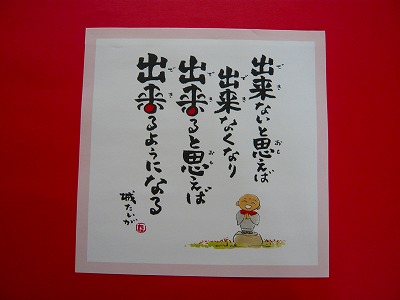 出来ないと思えば
出来なくなり
出来ると思えば
出来るようになる